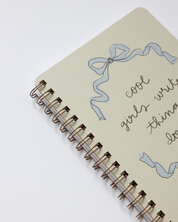 cool
girls write
things
do